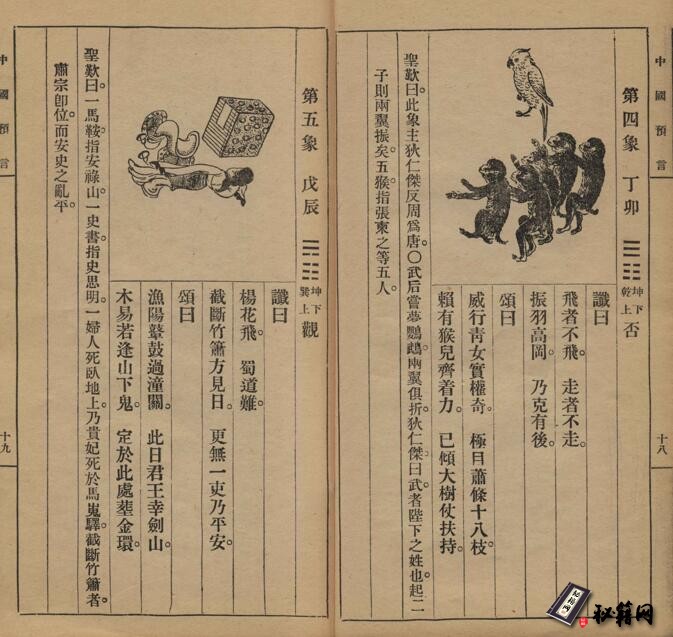 中國預言 十八
第四象 丁卯 坤下乾上 否
讖曰
飛者不飛。 走者不走。
振羽高岡。 乃克有後。
頌曰
威行靑女實權奇。 極目蕭條十八枝。
賴有猴兒齊着力。 已傾大樹仗扶持。
聖歎曰。此象主狄仁傑反周爲唐。〇武后嘗夢鸚鵡兩翼俱折。狄仁傑曰。武者陛下之姓也。起二
子則兩翼振矣。五猴指張柬之等五人。
第五象 戊辰 坤下巽上 觀
讖曰
楊花飛。 蜀道難。
截斷竹簫方見日。 更無一吏乃平安。
頌曰
漁陽鼙鼓過潼關。 此日君王幸劍山。
木易若逢山下鬼。 定於此處葬金環。
聖歎曰。一馬鞍。指安祿山。一史書。指史思明。一婦人死臥地上。乃貴妃死於馬嵬驛。截斷竹簫者。
肅宗卽位。而安史之亂平。
中國預言 十九
秘籍网